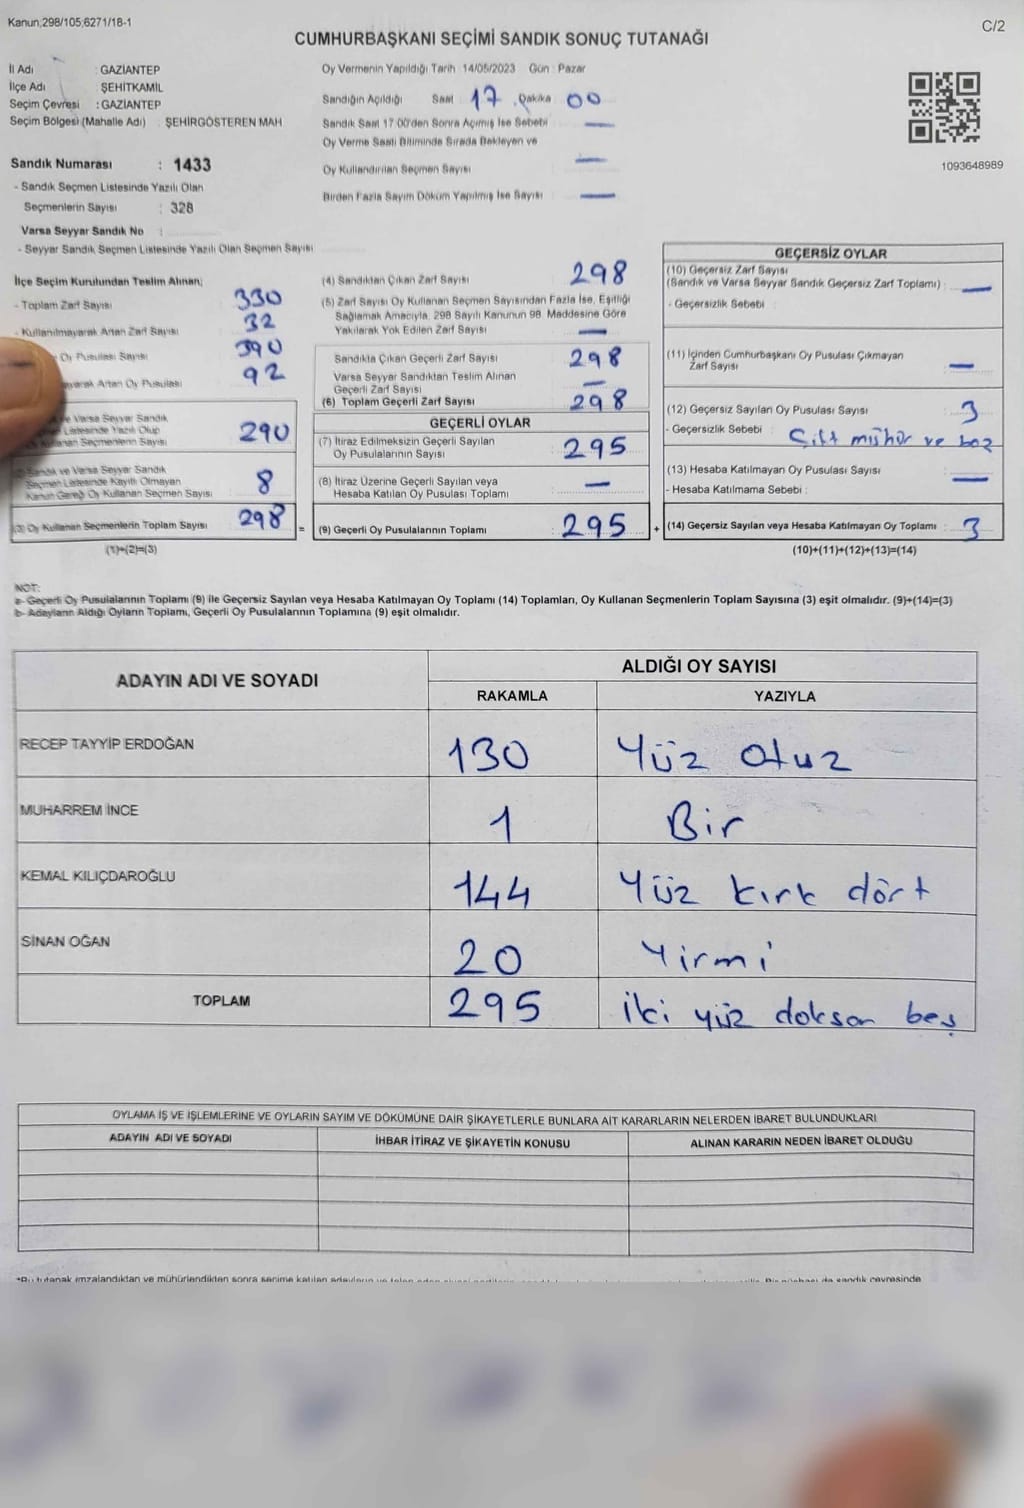 Kanun;298/105,6271/18-1
C/2
CUMHURBAŞKANI SEÇİMİ SANDIK SONUÇ TUTANAĞI
İl Adı : GAZİANTEP
İlçe Adı : ŞEHİTKAMİL
Seçim Çevresi : GAZİANTEP
Seçim Bölgesi (Mahalle Adı) : ŞEHİRGÖSTEREN MAH
Sandık Numarası : 1433
- Sandık Seçmen Listesinde Yazılı Olan
Seçmenlerin Sayısı : 328
Varsa Seyyar Sandık No :
- Seyyar Sandık Seçmen Listesinde Yazılı Olan Seçmen Sayısı
Oy Vermenin Yapıldığı Tarih : 14/05/2023 Gün : Pazar
Sandığın Açıldığı Saat 17 Dakika 00
Sandık Saat 17:00'den Sonra Açımış İse Sebebi —
Oy Verme Saati Bitiminde Sırada Bekleyen ve
Oy Kullandırılan Seçmen Sayısı —
Birden Fazla Sayım Döküm Yapılmış İse Sayısı —
1093648989
İlçe Seçim Kurulundan Teslim Alınan;
- Toplam Zarf Sayısı 330
- Kullanılmayarak Artan Zarf Sayısı 32
Oy Pusulası Sayısı 390
Artan Oy Pusulası 92
ve Varsa Seyyar Sandık
Listesinde Yazılı Olup
Kullanan Seçmenlerin Sayısı 290
Sandık ve Varsa Seyyar Sandık
Seçmen Listesinde Kayıtlı Olmayan
Kanun Gereği Oy Kullanan Seçmen Sayısı 8
(3) Oy Kullanan Seçmenlerin Toplam Sayısı 298
(1)+(2)=(3)
(4) Sandıktan Çıkan Zarf Sayısı 298
(5) Zarf Sayısı Oy Kullanan Seçmen Sayısından Fazla İse, Eşitliği
Sağlamak Amacıyla, 298 Sayılı Kanunun 98. Maddesine Göre
Yakılarak Yok Edilen Zarf Sayısı —
Sandıkta Çıkan Geçerli Zarf Sayısı 298
Varsa Seyyar Sandıktan Teslim Alınan
Geçerli Zarf Sayısı —
(6) Toplam Geçerli Zarf Sayısı 298
GEÇERLİ OYLAR
(7) İtiraz Edilmeksizin Geçerli Sayılan
Oy Pusulalarının Sayısı 295
(8) İtiraz Üzerine Geçerli Sayılan veya
Hesaba Katılan Oy Pusulası Toplamı —
= (9) Geçerli Oy Pusulalarının Toplamı 295 +
GEÇERSİZ OYLAR
(10) Geçersiz Zarf Sayısı
(Sandık ve Varsa Seyyar Sandık Geçersiz Zarf Toplamı) : —
- Geçersizlik Sebebi :
(11) İçinden Cumhurbaşkanı Oy Pusulası Çıkmayan
Zarf Sayısı —
(12) Geçersiz Sayılan Oy Pusulası Sayısı 3
- Geçersizlik Sebebi : Çift mühür ve boz
(13) Hesaba Katılmayan Oy Pusulası Sayısı —
- Hesaba Katılmama Sebebi :
(14) Geçersiz Sayılan veya Hesaba Katılmayan Oy Toplamı : 3
(10)+(11)+(12)+(13)=(14)
NOT:
a- Geçerli Oy Pusulalarının Toplamı (9) ile Geçersiz Sayılan veya Hesaba Katılmayan Oy Toplamı (14) Toplamları, Oy Kullanan Seçmenlerin Toplam Sayısına (3) eşit olmalıdır. (9)+(14)=(3)
b- Adayların Aldığı Oyların Toplamı, Geçerli Oy Pusulalarının Toplamına (9) eşit olmalıdır.
ADAYIN ADI VE SOYADI
ALDIĞI OY SAYISI
RAKAMLA YAZIYLA
RECEP TAYYİP ERDOĞAN 130 Yüz otuz
MUHARREM İNCE 1 Bir
KEMAL KILIÇDAROĞLU 144 Yüz kırk dört
SİNAN OĞAN 20 Yirmi
TOPLAM 295 iki yüz doksan beş
OYLAMA İŞ VE İŞLEMLERİNE VE OYLARIN SAYIM VE DÖKÜMÜNE DAİR ŞİKAYETLERLE BUNLARA AİT KARARLARIN NELERDEN İBARET BULUNDUKLARI
ADAYIN ADI VE SOYADI İHBAR İTİRAZ VE ŞİKAYETİN KONUSU ALINAN KARARIN NEDEN İBARET OLDUĞU
tutanak imzalandıktan ve mühürlendikten sonra seçime katılan